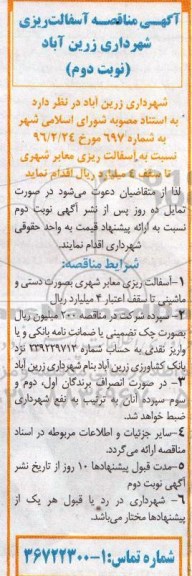 آگهـی مناقصـه آسفالت‌ریزی
شهرداری زرین آباد
(نوبت دوم)
شهرداری زرین آباد در نظر دارد
به استناد مصوبه شورای اسلامی شهر
به شماره ۶۹۷ مورخ ۹۶/۲/۲۴
نسبت به آسفالت ریزی معابر شهری
تا سقف ۴ میلیارد ریال اقدام نماید
لذا از متقاضیان دعوت می‌شود در صورت
تمایل ده روز پس از نشر آگهی نوبت دوم
نسبت به ارائه پیشنهاد قیمت به واحد حقوقی
شهرداری اقدام نمایند.
شرایط مناقصه:
۱-آسفالت ریزی معابر شهری بصورت دستی و
ماشینی تا سقف اعتبار ۴ میلیارد ریال
۲- سپرده شرکت در مناقصه ۲۰۰ میلیون ریال
بصورت چک تضمینی یا ضمانت نامه بانکی و یا
واریز نقدی به حساب شماره ۲۳۹۲۲۹۷۱۳ نزد
بانک کشاورزی زرین آباد بنام شهرداری زرین آباد
۳- در صورت انصراف برندگان اول، دوم و
سوم سپرده آنان به ترتیب به نفع شهرداری
ضبط خواهد شد.
۴-سایر جزئیات و اطلاعات مربوطه در اسناد
مناقصه ارائه می‌گردد.
۵-مدت قبول پیشنهادها ۱۰ روز از تاریخ نشر
آگهی نوبت دوم
۶- شهرداری در رد یا قبول هر یک از
پیشنهادها مختار می‌باشد.
شماره تماس:۱-۳۶۷۲۲۳۰۰